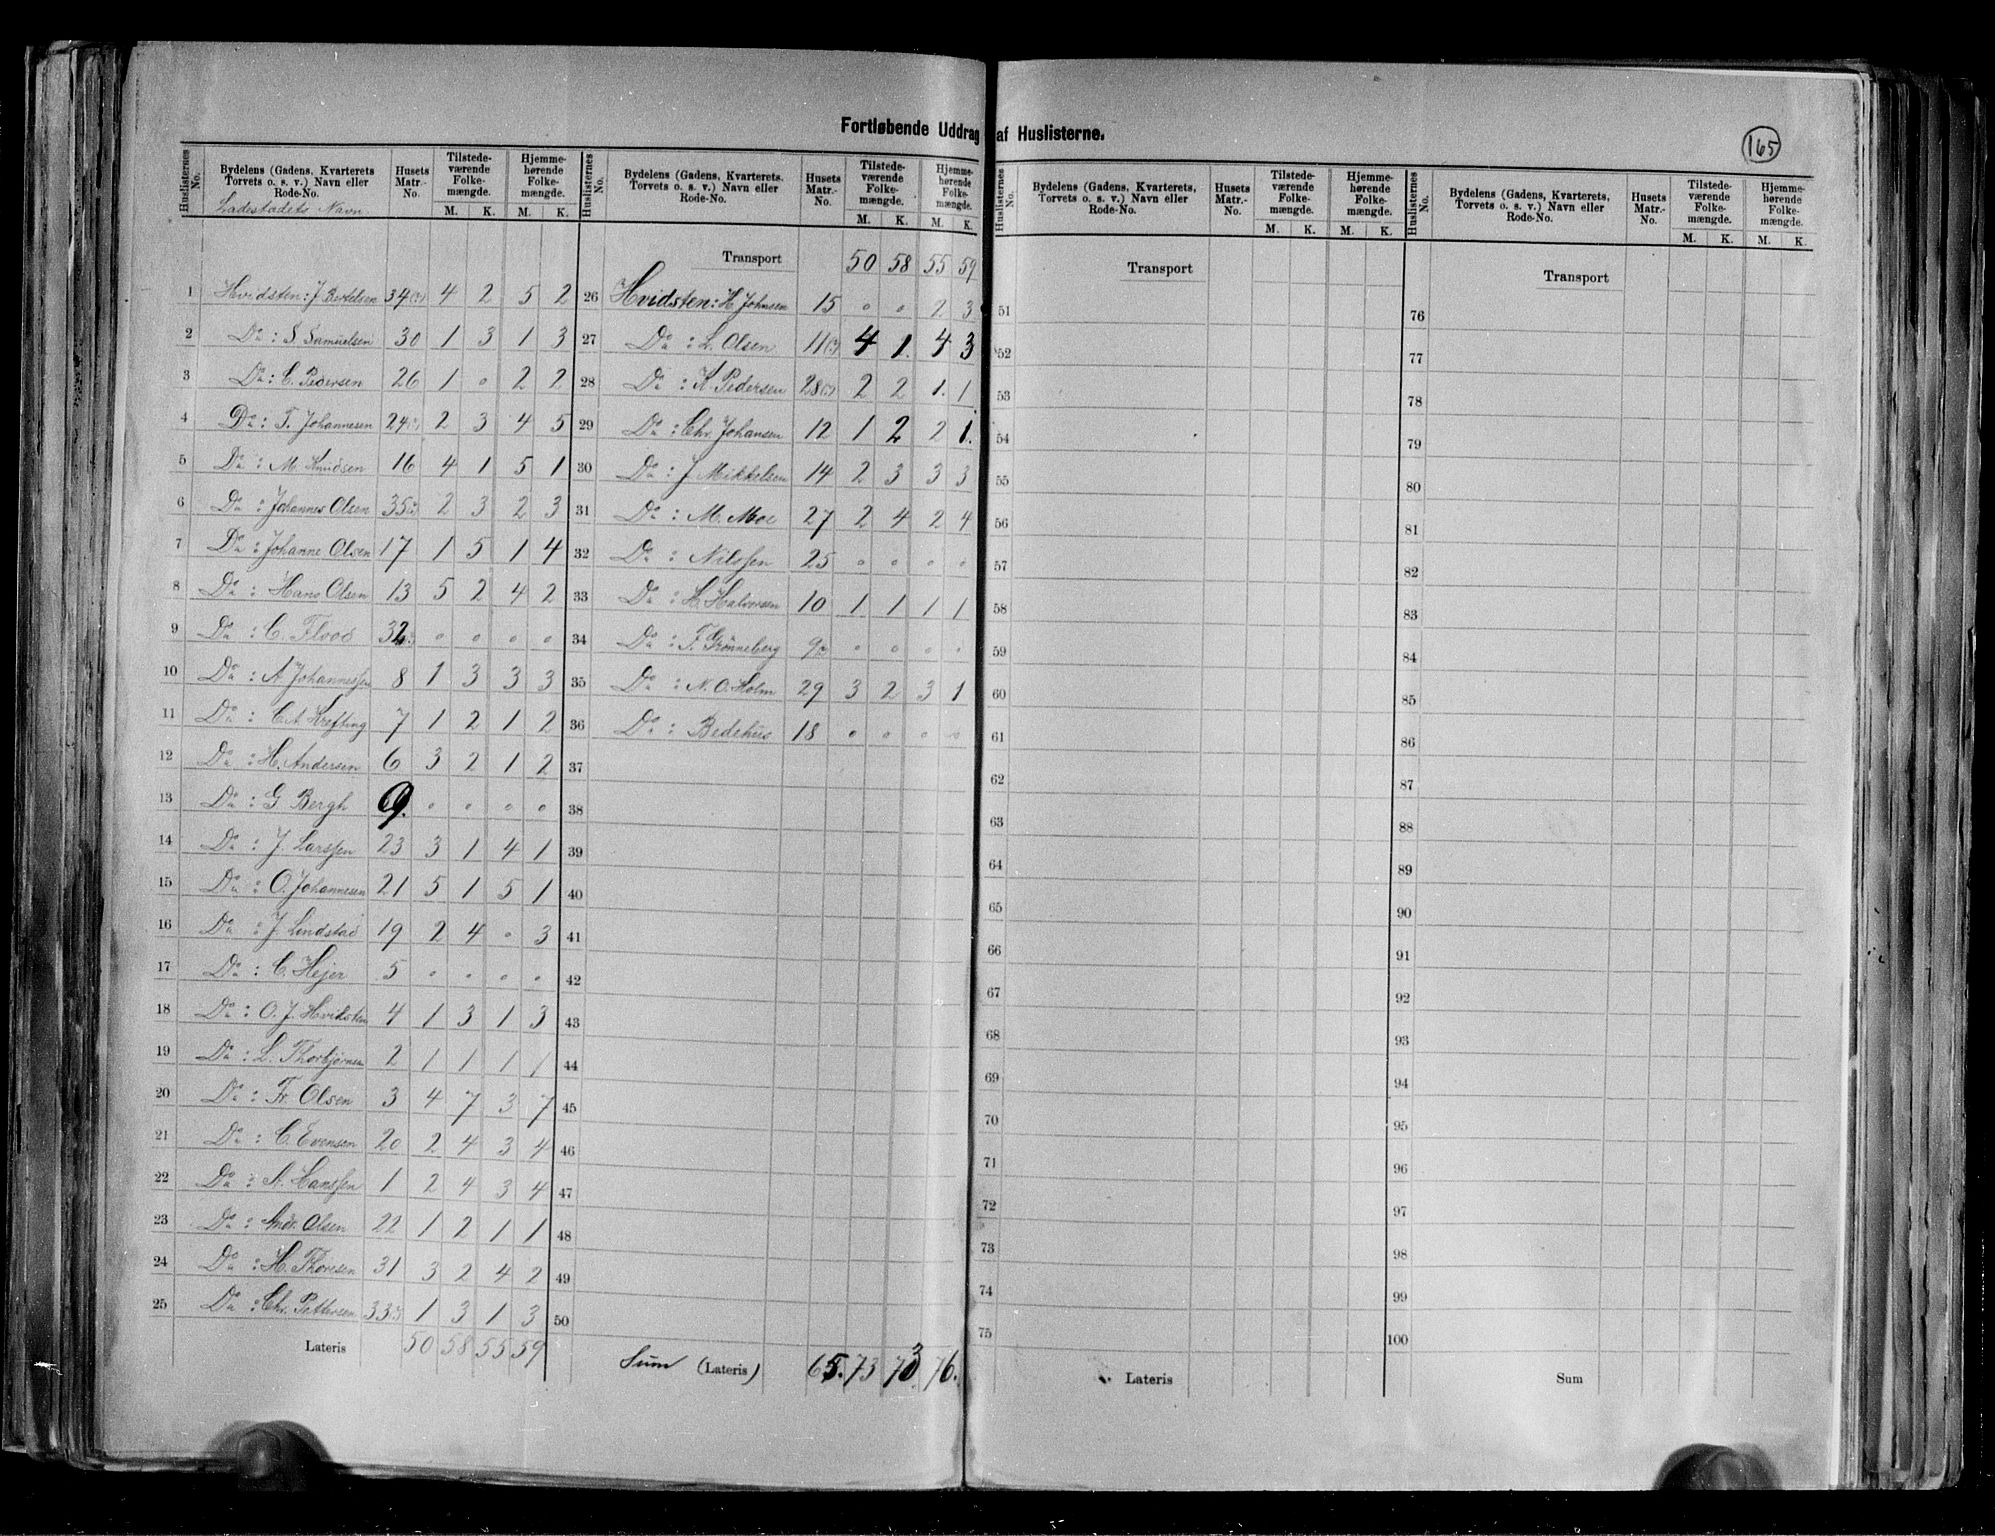 Fortløbende Uddrag af Huslisterne.
165
Huslisternes No. | Bydelens (Gadens, Kvarterets Torvets o. s. v.) Navn eller Rode-No. Ladestadets Navn | Husets Matr.-No. | Tilstedeværende Folkemængde. M. K. | Hjemmehørende Folkemængde. M. K.
1 Hvidsten: J Bertelsen 34 4 2 5 2
2 Do : S Samuelsen 30 1 3 1 3
3 Do : C. Pedersen 26 1 0 2 2
4 Do : T. Johannesen 24 2 3 4 5
5 Do : M. Knudsen 16 4 1 5 1
6 Do : Johannes Olsen 35 2 3 2 3
7 Do : Johanne Olsen 17 1 5 1 4
8 Do : Hans Olsen 13 5 2 4 2
9 Do : C. Flood 32 0 0 0 0
10 Do : A Johannessen 8 1 3 3 3
11 Do : C A Krefting 7 1 2 1 2
12 Do : H. Andersen 6 3 2 1 2
13 Do : G Bergh 9. 0 0 0 0
14 Do : J. Larssen 23 3 1 4 1
15 Do : O. Johannesen 21 5 1 5 1
16 Do : J Lindstad 19 2 4 0 3
17 Do : C. Hejer 5 0 0 0 0
18 Do : O. J. Hvidsten 4 1 3 1 3
19 Do : L. Thorbjørnsen 2 1 1 1 1
20 Do : Fr Olsen 3 4 7 3 7
21 Do : C. Evensen 20 2 4 3 4
22 Do : A. Hanssen 1 2 4 3 4
23 Do : Andr. Olsen 22 1 2 1 1
24 Do : H. Thoresen 31 3 2 4 2
25 Do : Chr. Pettersen 33 1 3 1 3
Lateris 50 58 55 59
Huslisternes No. | Bydelens (Gadens, Kvarterets, Torvets o. s. v.) Navn eller Rode-No. | Husets Matr.-No. | Tilstedeværende Folkemængde. M. K. | Hjemmehørende Folkemængde. M. K.
Transport 50 58 55 59
26 Hvidsten: H Johnsen 15 0 0 2 3
27 Do : L. Olsen 11 4 1. 4 3
28 Do : K Pedersen 28 2 2 1. 1
29 Do : Chr. Johansen 12 1 2 2 1.
30 Do : J Mikkelsen 14 2 3 3 3
31 Do : M. Moe 27 2 4 2 4
32 Do : Nilssen 25 0 0 0 0
33 Do : H. Halvorsen 10 1 1 1 1
34 Do : F. Grønneberg 9 0 0 0 0
35 Do : N. O. Holm 29 3 2 3 1
36 Do : Bedehus 18 0 0 0 0
37
38
39
40
41
42
43
44
45
46
47
48
49
50
Sum (Lateris) 65. 73 73. 76.
Huslisternes No. | Bydelens (Gadens, Kvarterets, Torvets o. s. v.) Navn eller Rode-No. | Husets Matr.-No. | Tilstedeværende Folkemængde. M. K. | Hjemmehørende Folkemængde. M. K.
Transport
51
52
53
54
55
56
57
58
59
60
61
62
63
64
65
66
67
68
69
70
71
72
73
74
75
Lateris
Huslisternes No. | Bydelens (Gadens, Kvarterets, Torvets o. s. v.) Navn eller Rode-No. | Husets Matr.-No. | Tilstedeværende Folkemængde. M. K. | Hjemmehørende Folkemængde. M. K.
Transport
76
77
78
79
80
81
82
83
84
85
86
87
88
89
90
91
92
93
94
95
96
97
98
99
100
Sum